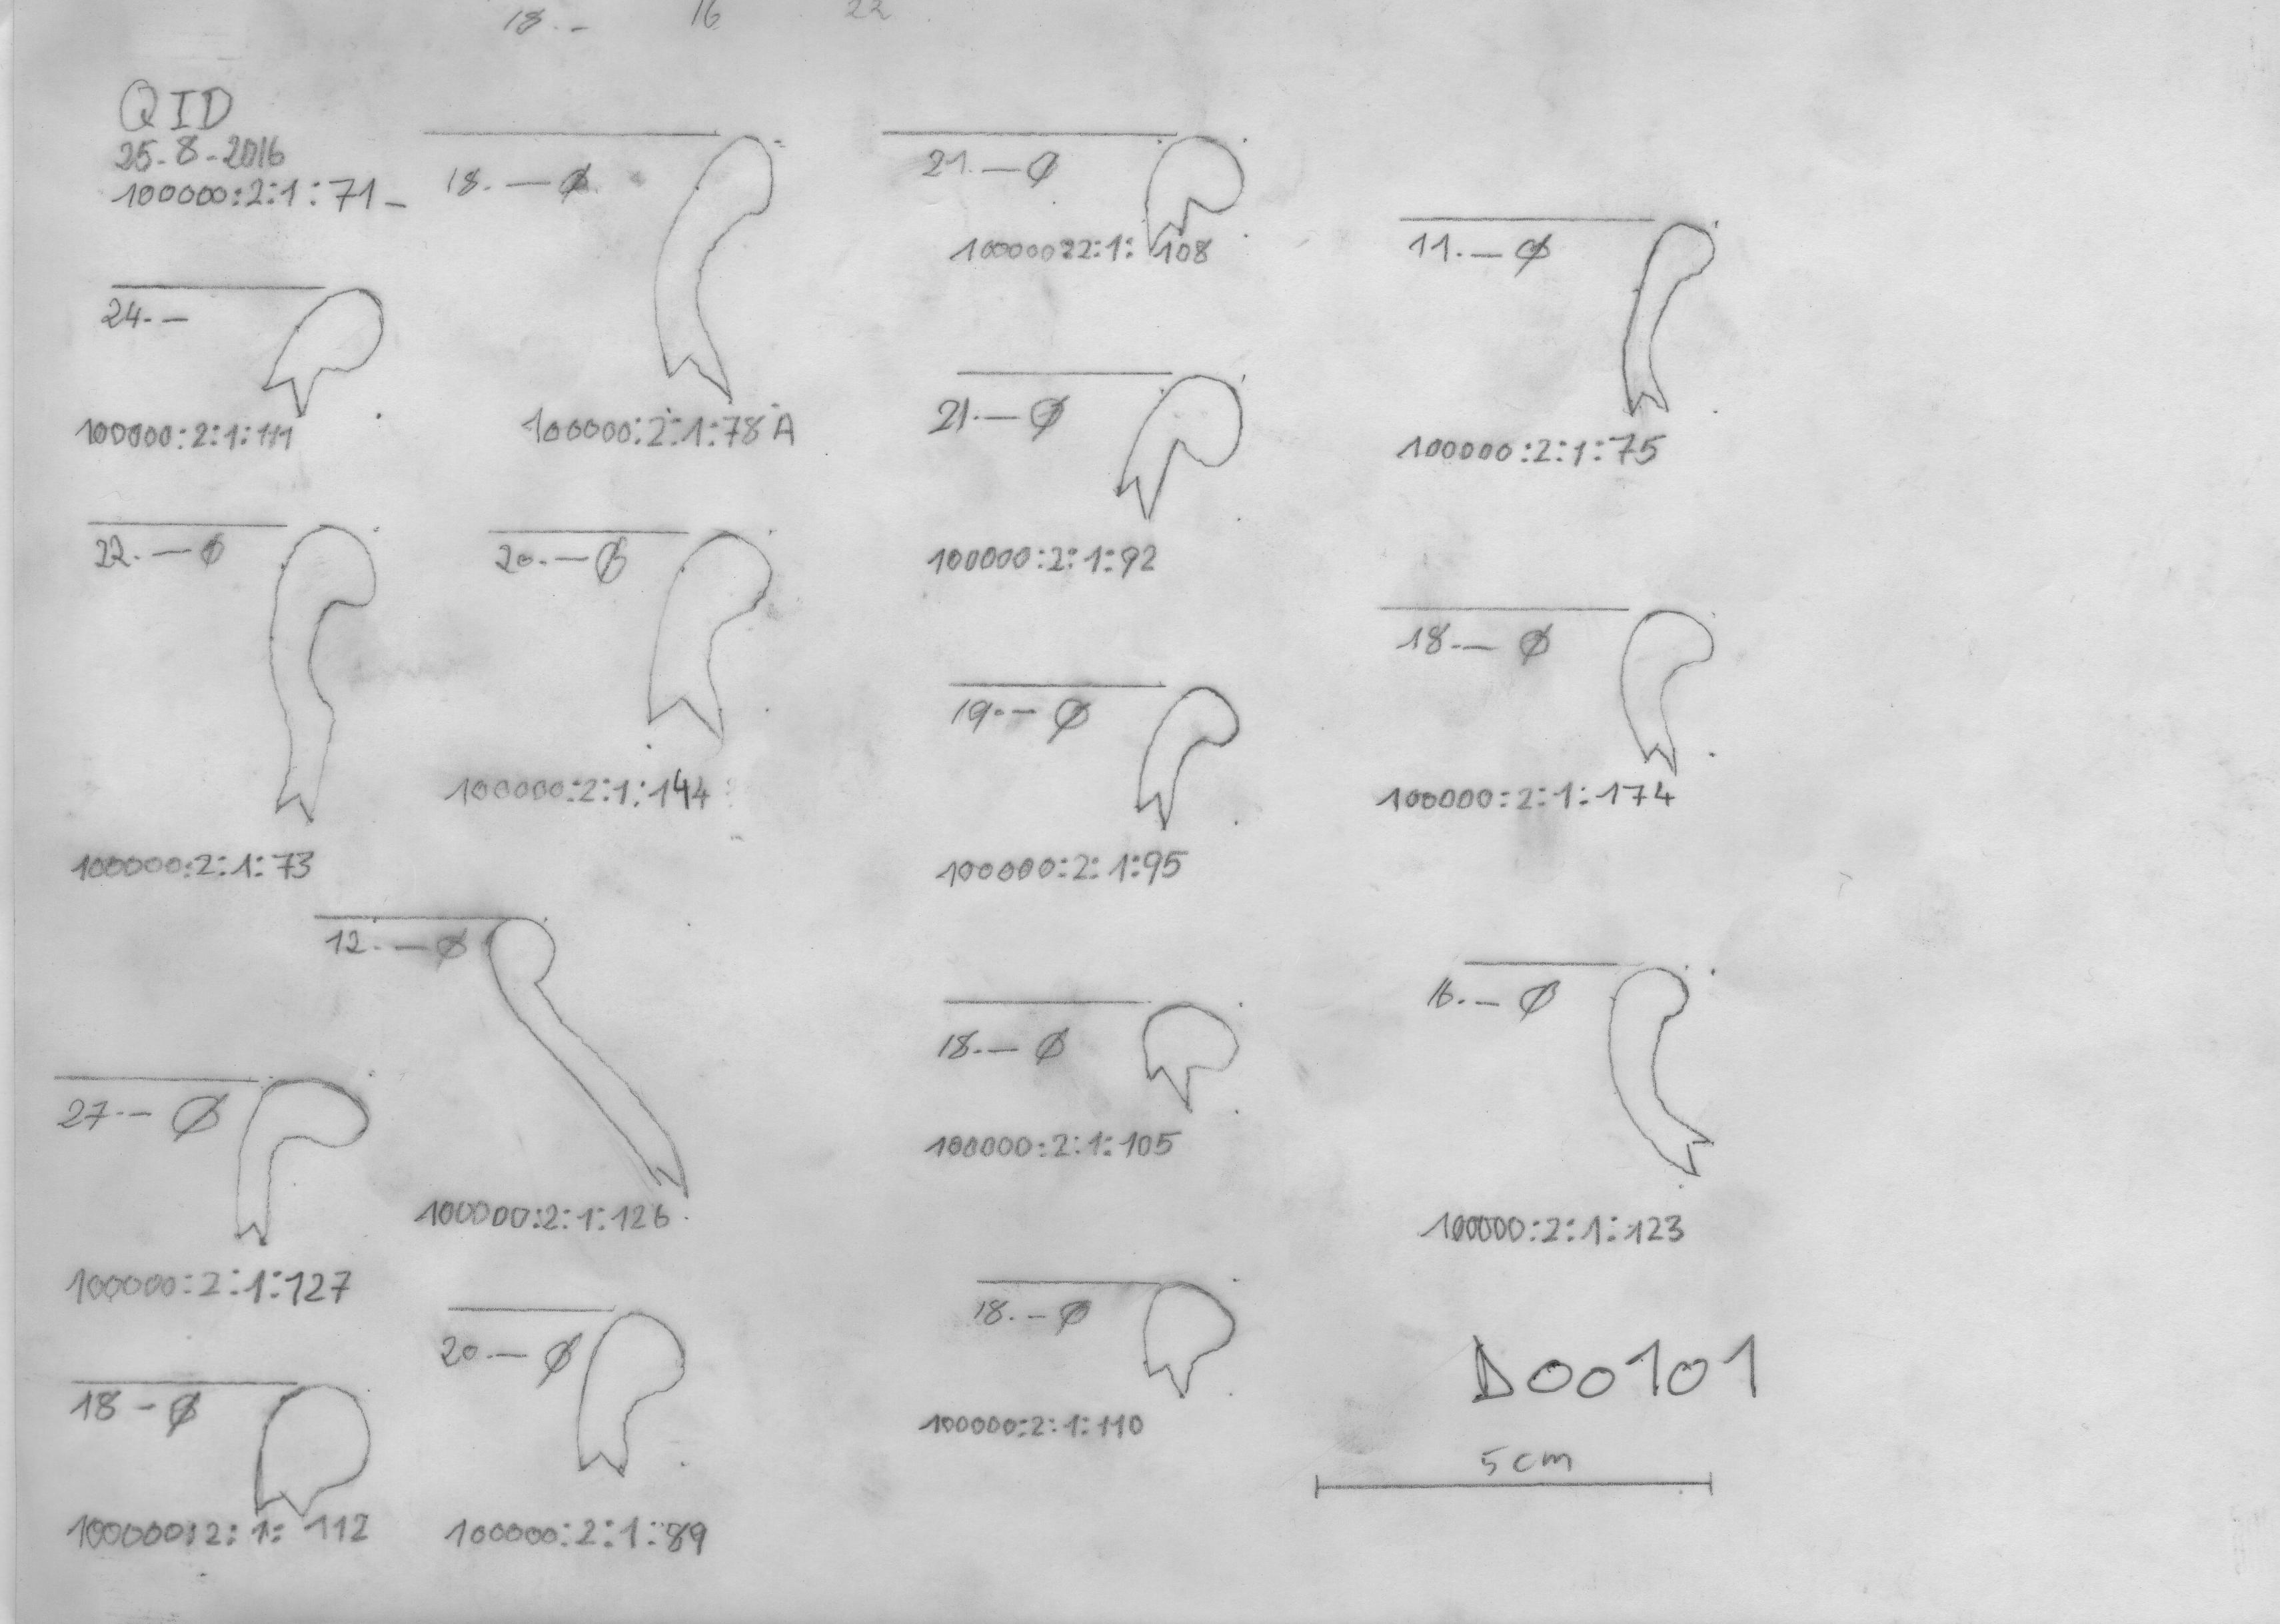 18.- 16 22
QID
25-8-2016
100000:2:1:71-
24.-
100000:2:1:111
22.-ø
100000:2:1:73
27.-ø
100000:2:1:127
18-ø
100000:2:1:112
18.-ø
100000:2:1:78A
20.-ø
100000:2:1:144
12.-ø
100000:2:1:126
20.-ø
100000:2:1:89
21.-ø
100000:2:1:108
21.-ø
100000:2:1:92
19.-ø
100000:2:1:95
18.-ø
100000:2:1:105
18.-ø
100000:2:1:110
11.-ø
100000:2:1:75
18.-ø
100000:2:1:174
16.-ø
100000:2:1:123
D00101
5cm